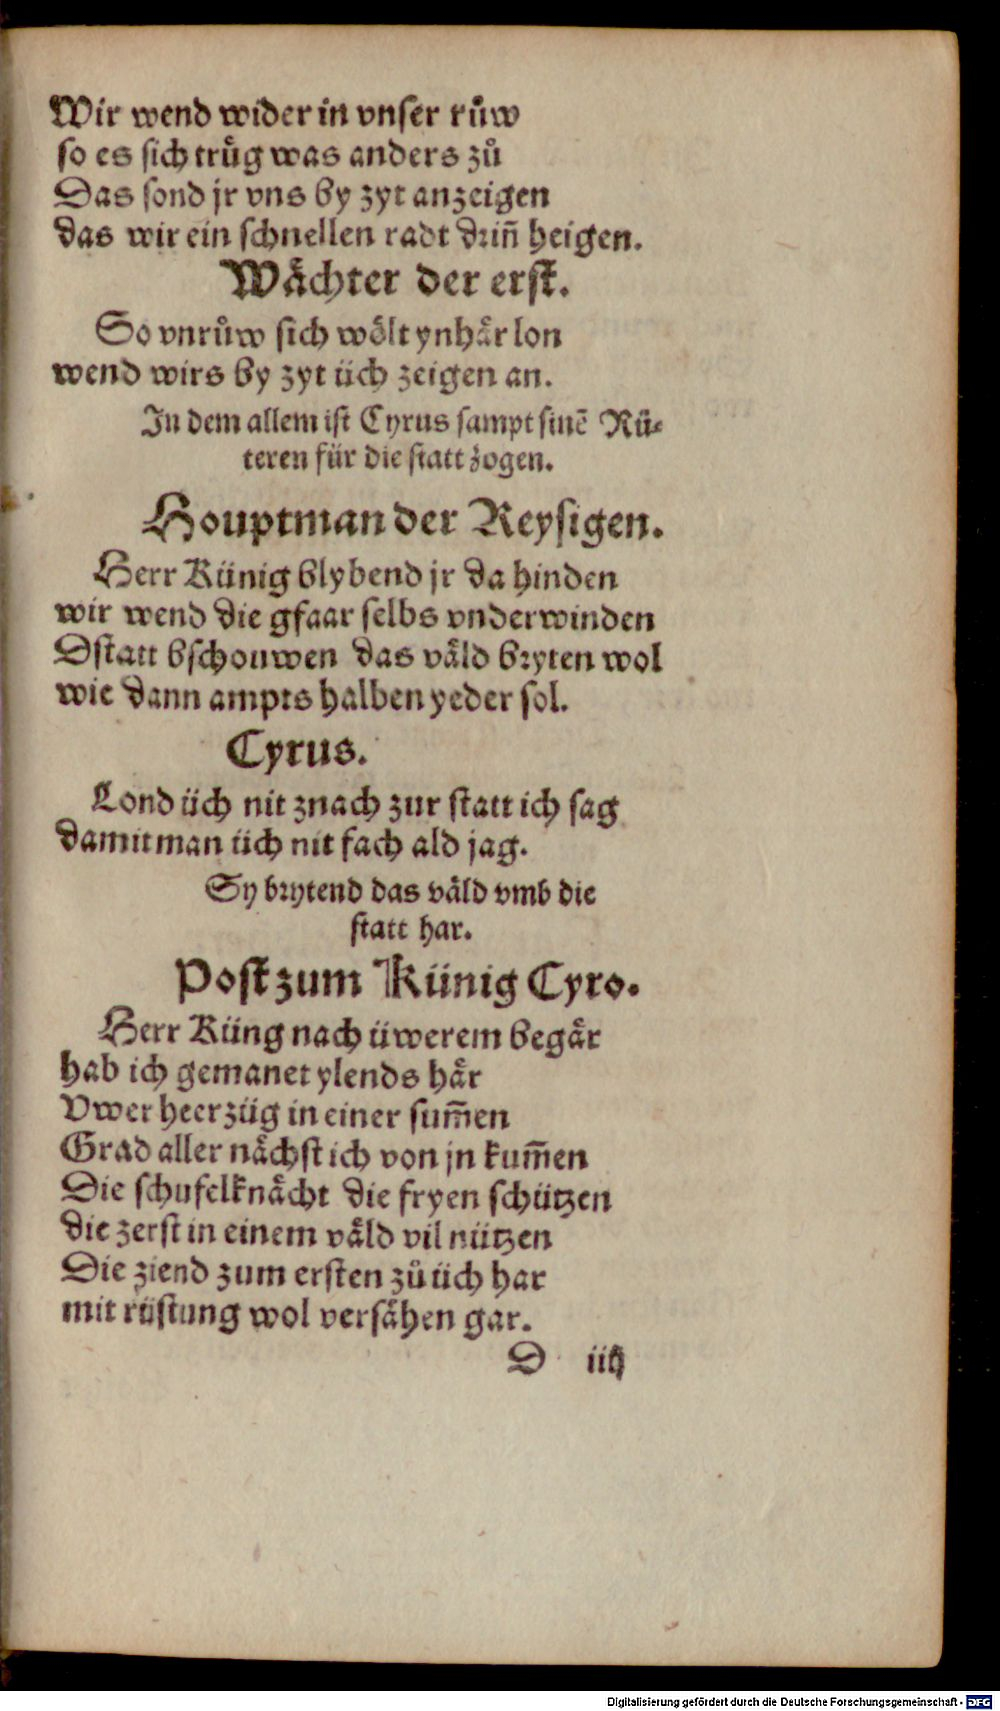 Wir wend wider in vnser růw
so es sich trüg was anders zů
Das sond jr vns by zyt anzeigen
das wir ein schnellen radt driñ heigen.
Wächter der erst.
So vnrůw sich wölt ynhär lon
wend wirs by zyt üch zeigen an.
In dem allem ist Cyrus sampt sinē Rü-
teren für die statt zogen.
Houptman der Reysigen.
Herr Künig blybend jr da hinden
wir wend die gfaar selbs vnderwinden
Dstatt bschouwen das väld bryten wol
wie dann ampts halben yeder sol.
Cyrus.
Lond üch nit znach zur statt ich sag
damit man üch nit fach ald jag.
Sy brytend das väld vmb die
statt har.
Post zum Künig Cyro.
Herr Küng nach üwerem begär
hab ich gemanet ylends här
Vwer heerzüg in einer sum̄en
Grad aller nächst ich von jn kum̄en
Die schufelknächt die fryen schützen
die zerst in einem väld vil nützen
Die ziend zum ersten zů üch har
mit rüstung wol versähen gar.
D iiij
Digitalisierung gefördert durch die Deutsche Forschungsgemeinschaft - DFG